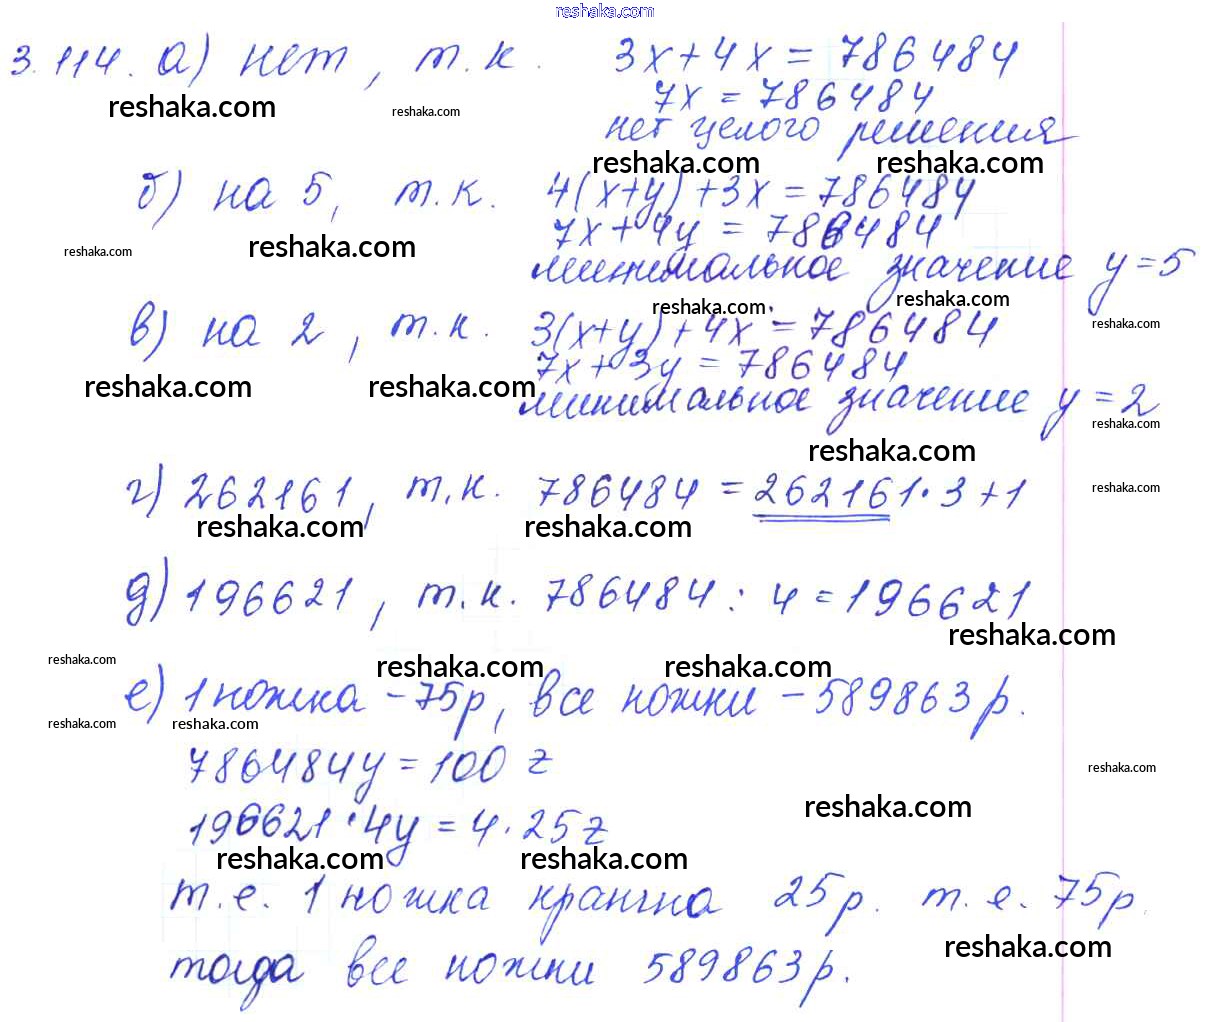 reshaka.com
3.114. а) нет, т.к. 3x+4x = 786484
reshaka.com reshaka.com
7x = 786484
нет целого решения
reshaka.com reshaka.com
б) на 5, т.к. 4(x+y)+3x = 786484
7x+4y = 786484
reshaka.com reshaka.com
минимальное значение y=5
reshaka.com reshaka.com
в) на 2, т.к. 3(x+y)+4x = 786484
reshaka.com
7x+3y = 786484
reshaka.com reshaka.com
минимальное значение y=2
reshaka.com
reshaka.com
г) 262161, т.к. 786484 = 262161·3+1
reshaka.com
reshaka.com reshaka.com
д) 196621, т.к. 786484 : 4 = 196621
reshaka.com
reshaka.com reshaka.com reshaka.com
е) 1 ножка – 75р, все ножки – 589863р.
reshaka.com reshaka.com
786484y = 100 z
reshaka.com
reshaka.com
196621·4y = 4·25z
reshaka.com reshaka.com
т.е. 1 ножка кратна 25р. т.е. 75р.
reshaka.com
тогда все ножки 589863р.